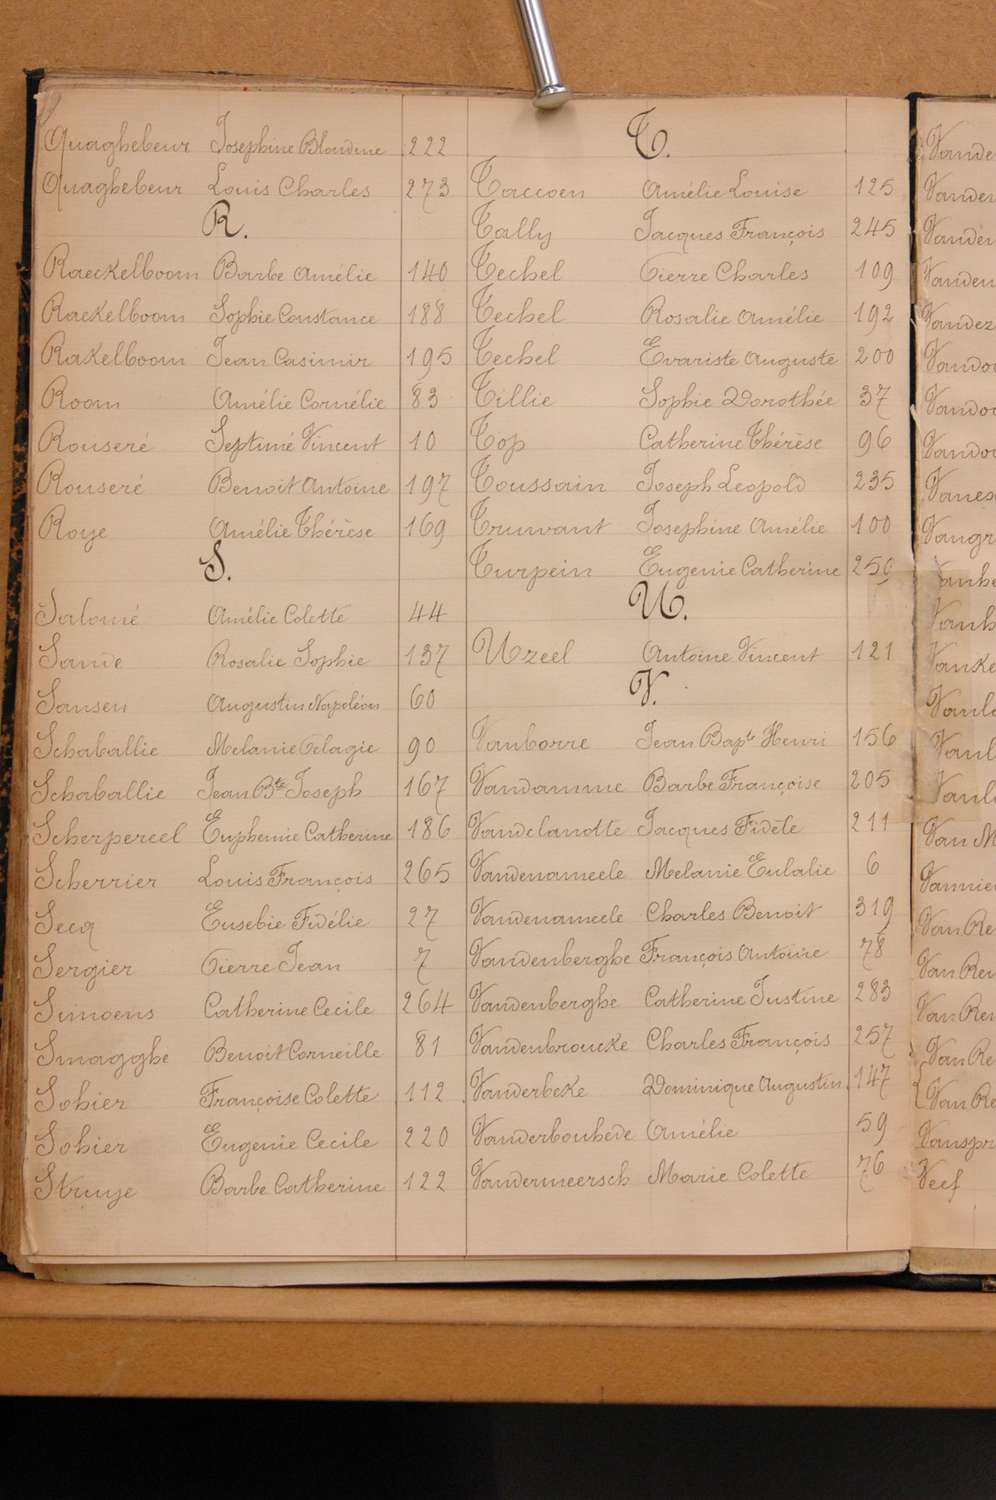 Quaghebeur Josephine Blandine 222
Quaghebeur Louis Charles 273
R.
Raeckelboom Barbe Amélie 140
Raekelboom Sophie Constance 188
Rakelboom Jean Casimir 195
Room Amélie Cornélie 83
Rouseré Septime Vincent 10
Rouseré Benoit Antoine 197
Roye Amélie Thérèse 169
S.
Salomé Amélie Colette 44
Sande Rosalie Sophie 137
Sansen Augustin Napoléon 60
Schaballie Melanie Pelagie 90
Schaballie Jean Bte Joseph 167
Scherpereel Euphemie Catherine 186
Scherrier Louis François 265
Secq Eusebie Fidélie 27
Sergier Pierre Jean 7
Simoens Catherine Cecile 264
Smagghe Benoit Corneille 81
Sohier Françoise Colette 112
Sohier Eugenie Cecile 220
Struye Barbe Catherine 122
T.
Taccoen Amélie Louise 125
Tally Jacques François 245
Techel Pierre Charles 109
Techel Rosalie Amélie 192
Techel Evariste Auguste 200
Tillie Sophie Dorothée 37
Top Catherine Thérèse 96
Toussain Joseph Leopold 235
Truwant Josephine Amélie 100
Turpein Eugenie Catherine 250
U.
Uzeel Antoine Vincent 121
V.
Vanborre Jean Bapte Henri 156
Vandamme Barbe Françoise 205
Vandelanotte Jacques Fidèle 211
Vandenameele Melanie Eulalie 6
Vandenameele Charles Benoit 319
Vandenberghe François Antoine 78
Vandenberghe Catherine Justine 283
Vandenbroucke Charles François 257
Vanderbeke Dominique Augustin 147
Vanderbouhede Amélie 59
Vandermeersch Marie Colette 76